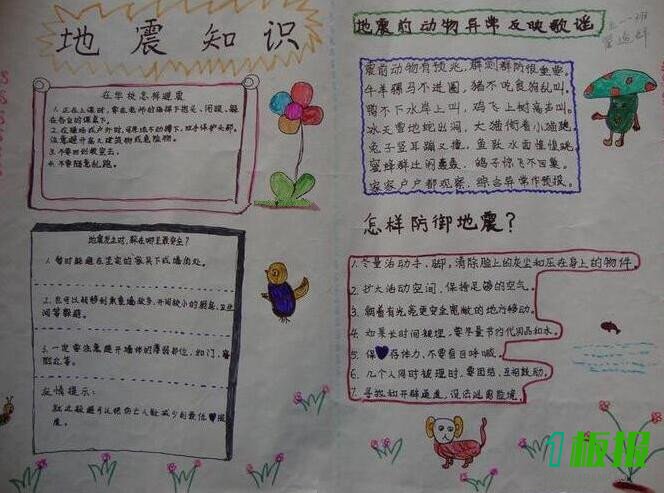 地震知识
在学校怎样避震
1. 正在上课时,要在老师的指挥下抱头、闭眼、躲
在各自的课桌下。
2. 在操场或户外时,可原地不动蹲下,双手保护头部,
注意避开高大建筑物或危险物。
3. 不要回到教室去。
4. 不要随意乱跑。
地震发生时,躲在哪里最安全?
1. 暂时躲避在坚实的家具下或墙角处。
2. 也可以转移到承重墙较多、开间较小的厨房、卫生
间等躲避。
3. 一定要注意避开墙体的薄弱部位,如门、窗
附近等。
友情提示:
就近躲避可以使伤亡人数减少到最低 限
度。
地震前动物异常反映歌谣
震前动物有预兆,群测群防很重要。
牛羊骡马不进圈,猪不吃食狗乱叫。
鸭不下水岸上叫,鸡飞上树高声叫。
冰天雪地蛇出洞,大猫衔着小猫跑。
兔子竖耳蹦又撞,鱼跃水面惶惶跳。
蜜蜂群迁闹轰轰,鸽子惊飞不回巢。
家家户户都观察,综合异常作预报。
怎样防御地震?
1. 尽量活动手、脚,清除脸上的灰尘和压在身上的物件。
2. 扩大活动空间,保持足够的空气。
3. 朝着有光亮更安全宽敞的地方移动。
4. 如果长时间被埋,要尽量节约代用品和水。
5. 保存体力,不要盲目呼喊。
6. 几个人同时被埋时,要团结,互相鼓励。
7. 寻找和开辟通道,设法逃离险境。
板报